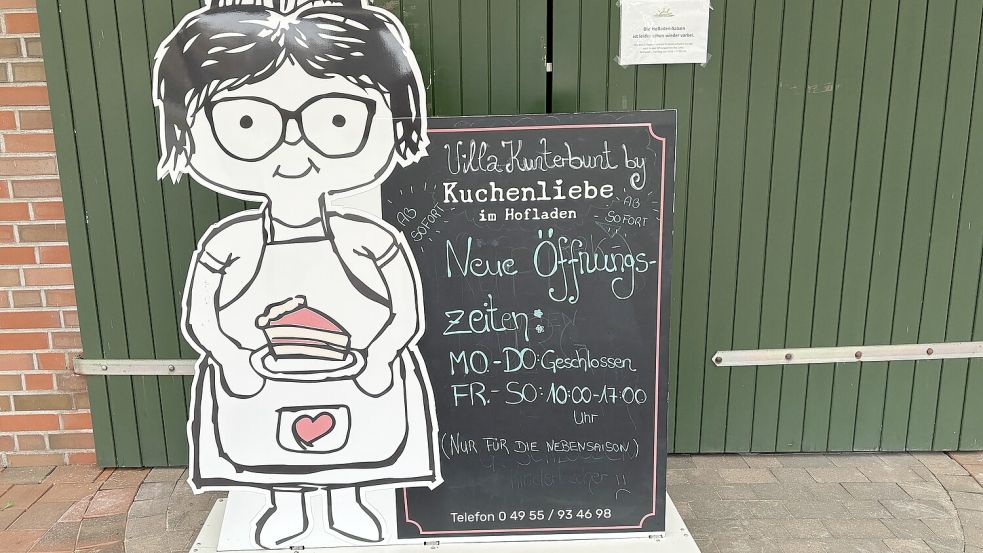 Die Hofladen-Saison
ist leider schon wieder vorbei.
Villa Kunterbunt by
Kuchenliebe
im Hofladen
AB
SOFORT
AB
SOFORT
Neue Öffnungs-
zeiten:
MO.-DO: Geschlossen
FR.-SO: 10:00-17:00
Uhr
(NUR FÜR DIE NEBENSAISON)
Telefon 0 49 55 / 93 46 98